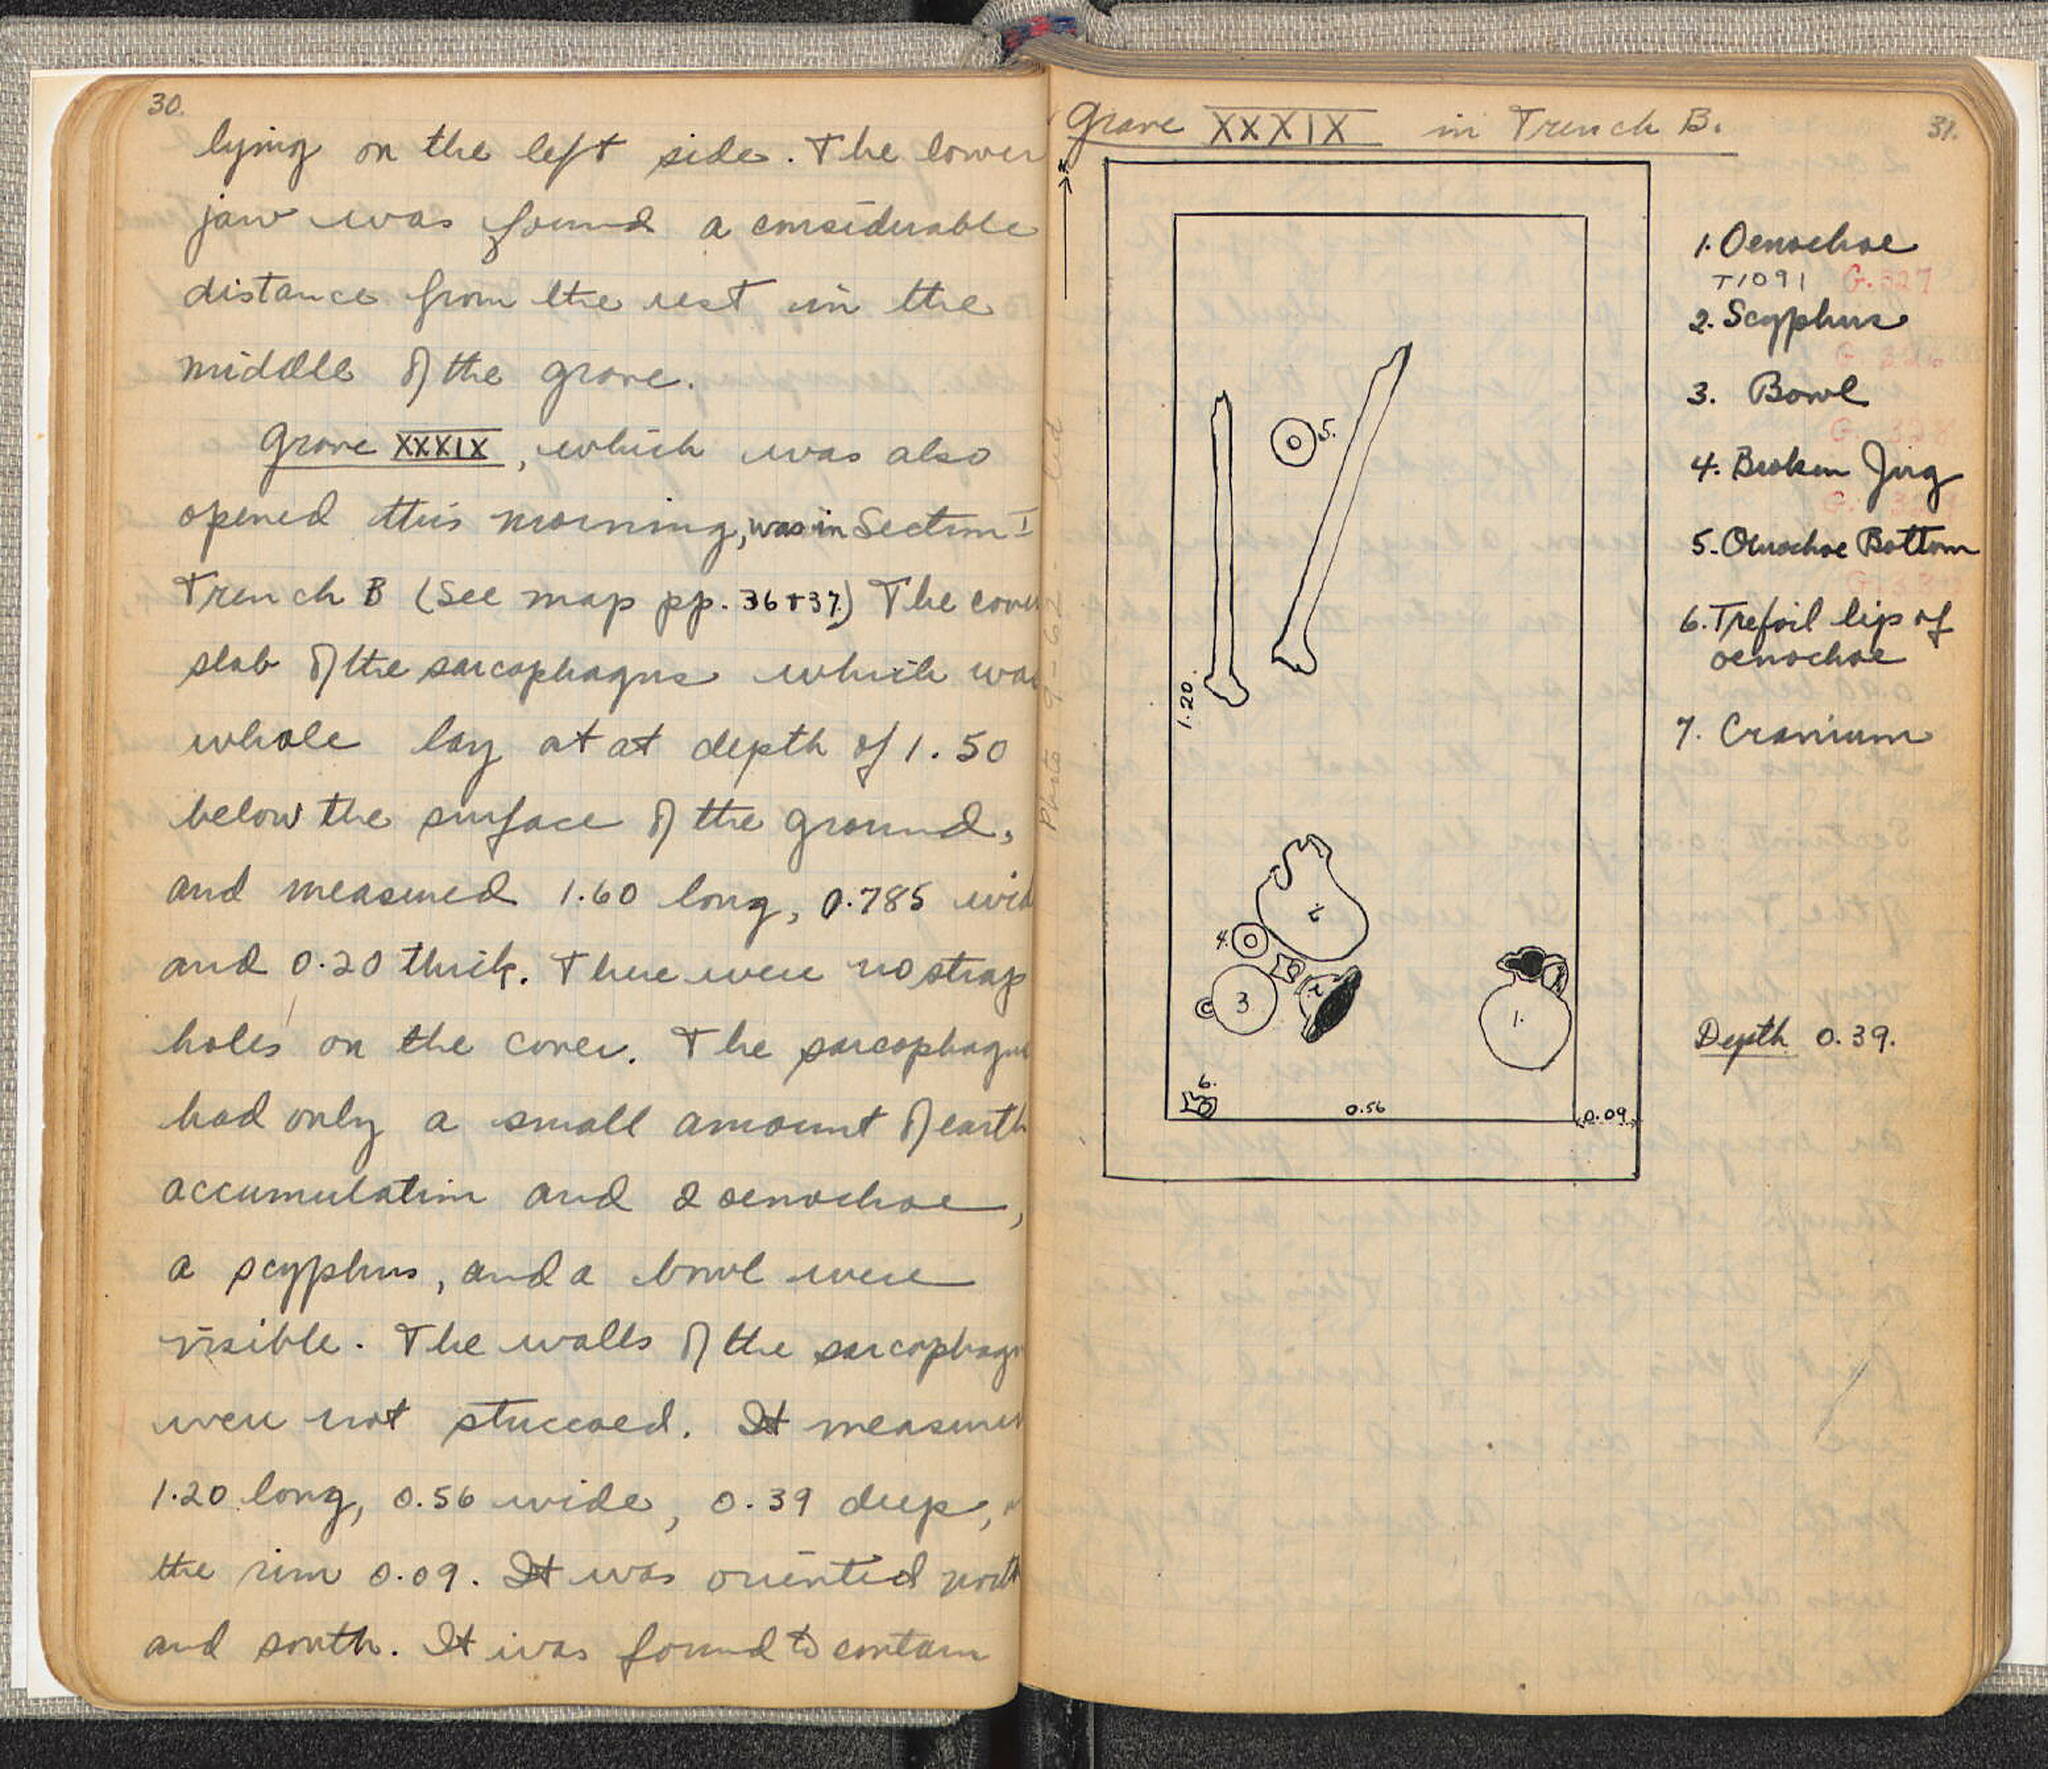 30.
lying on the left side. The lower
jaw was found a considerable
distance from the rest in the
middle of the grave.
Grave XXXIX, which was also
opened this morning, was in Section I
Trench B (See map pp. 36+37.) The cover
slab of the sarcophagus which was
whole lay at at depth of 1.50
below the surface of the ground,
and measured 1.60 long, 0.785 wid
and 0.20 thick. There were no strap
holes on the cover. The sarcophagus
had only a small amount of earth
accumulation and 2 oenochoe,
a scyphus, and a bowl were
visible. The walls of the sarcophagu
were not stuccoed. It measured
1.20 long, 0.56 wide, 0.39 deep,
the rim 0.09. It was oriented north
and south. It was found to contain
Grave XXXIX in Trench B.
31.
1. Oenochoe
T1091 G.327
2. Scyphus
G. 326
3. Bowl
G. 328
4. Broken Jug
G. 329
5. Oenochoe Bottom
6. Trefoil lip of
oenochoe
7. Cranium
Depth 0.39.
5.
1.20.
7.
4.
3
2
1.
6.
0.56
0.09